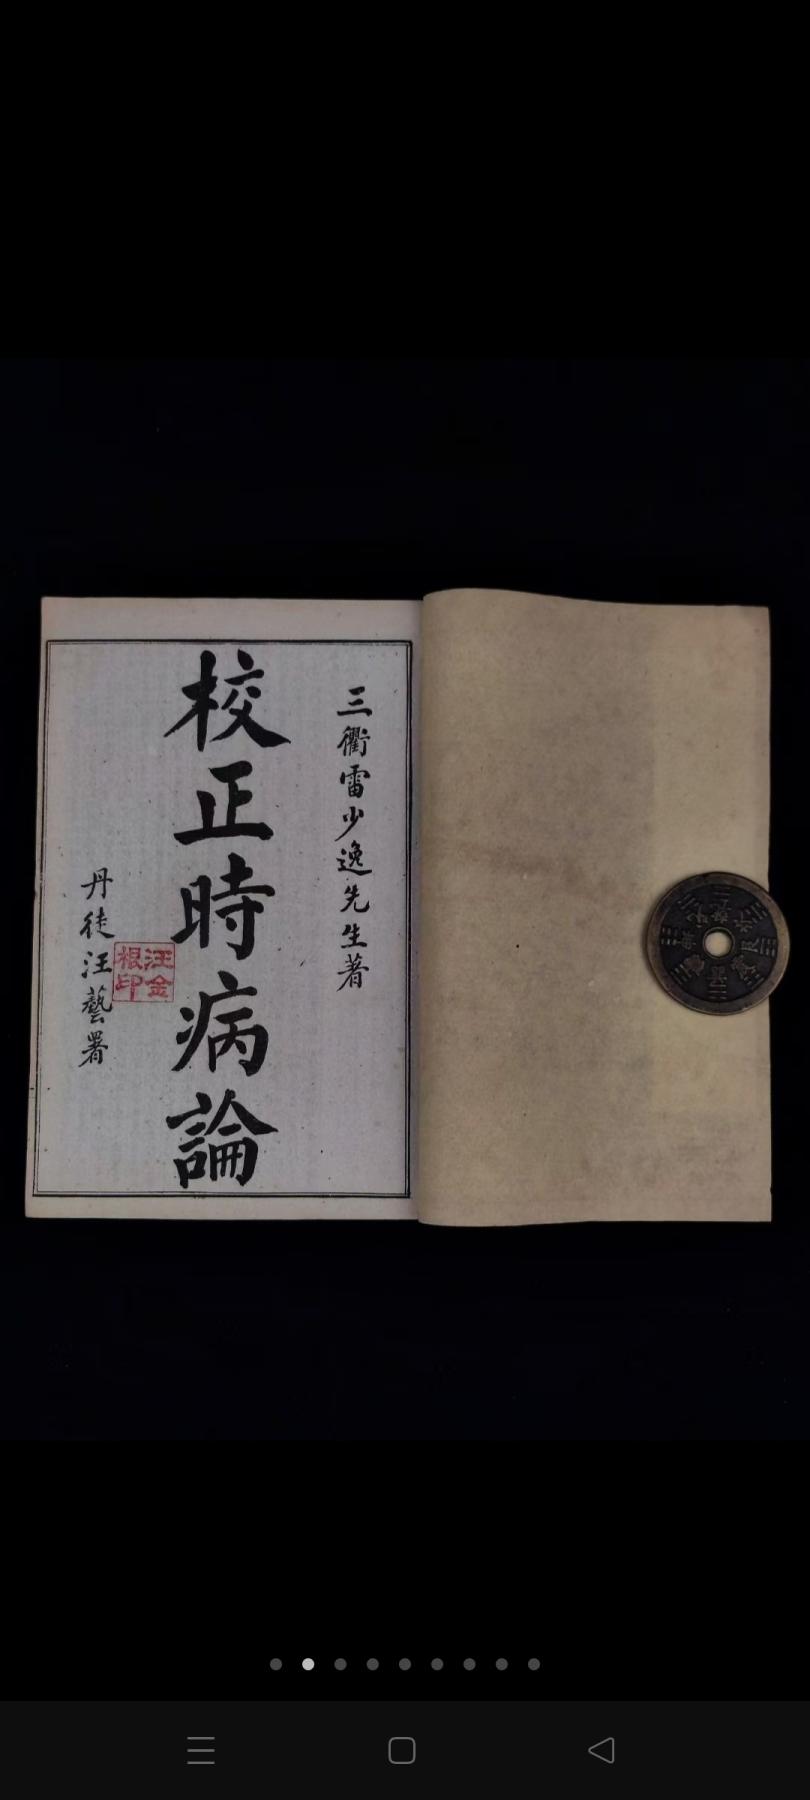 三衢雷少逸先生著
校正時病論
丹徒汪藝署
汪金
根印